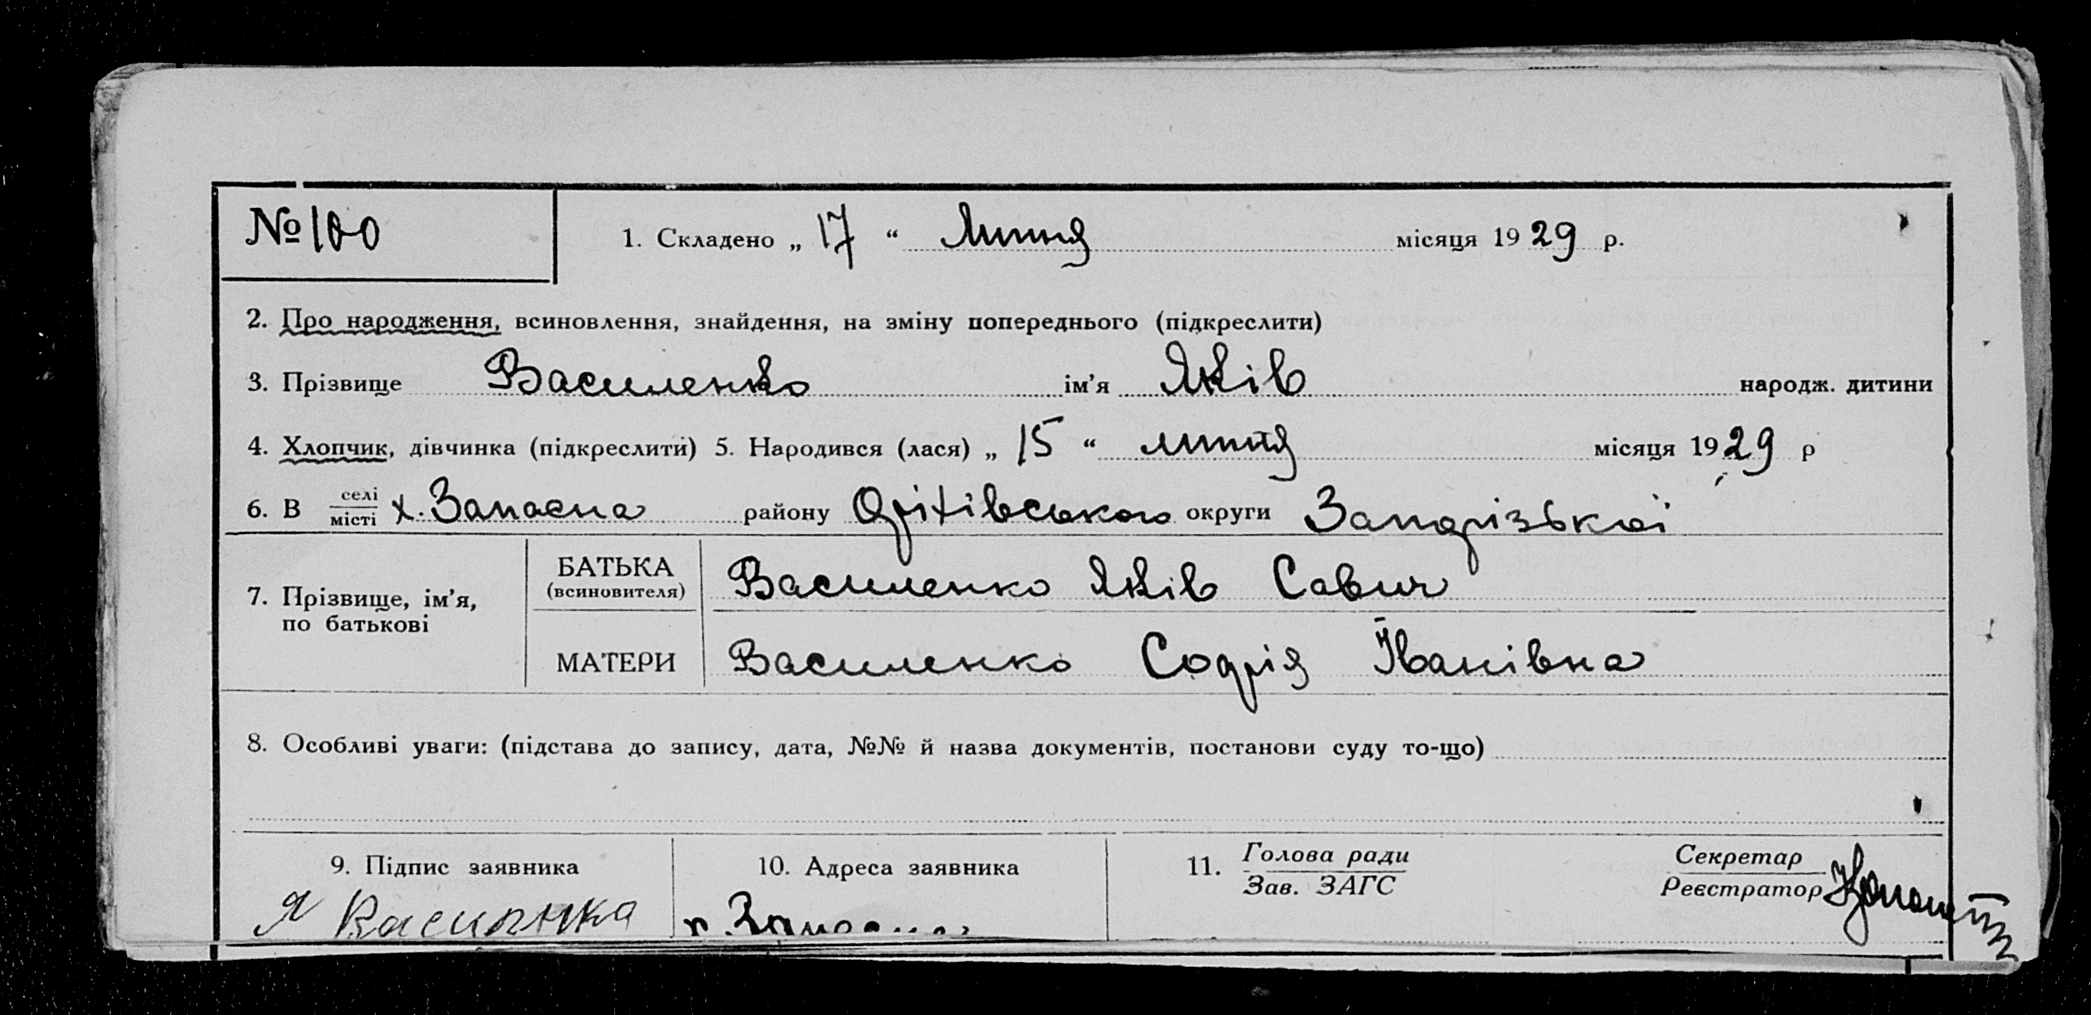 № 100
1. Складено „ 17 “ Липня місяця 1929 р.
2. Про народження, всиновлення, знайдення, на зміну попереднього (підкреслити)
3. Прізвище Василенко ім’я Яків народж. дитини
4. Хлопчик, дівчинка (підкреслити) 5. Народився (лася) „ 15 “ липня місяця 1929 р
6. В селі/місті х. Запасна району Оріхівського округи Запорізької
7. Прізвище, ім’я, по батькові
БАТЬКА (всиновителя) Василенко Яків Савич
МАТЕРИ Василенко Софія Іванівна
8. Особливі уваги: (підстава до запису, дата, №№ й назва документів, постанови суду то-що)
9. Підпис заявника 10. Адреса заявника 11. Голова ради/Зав. ЗАГС Секретар/Реєстратор
Я